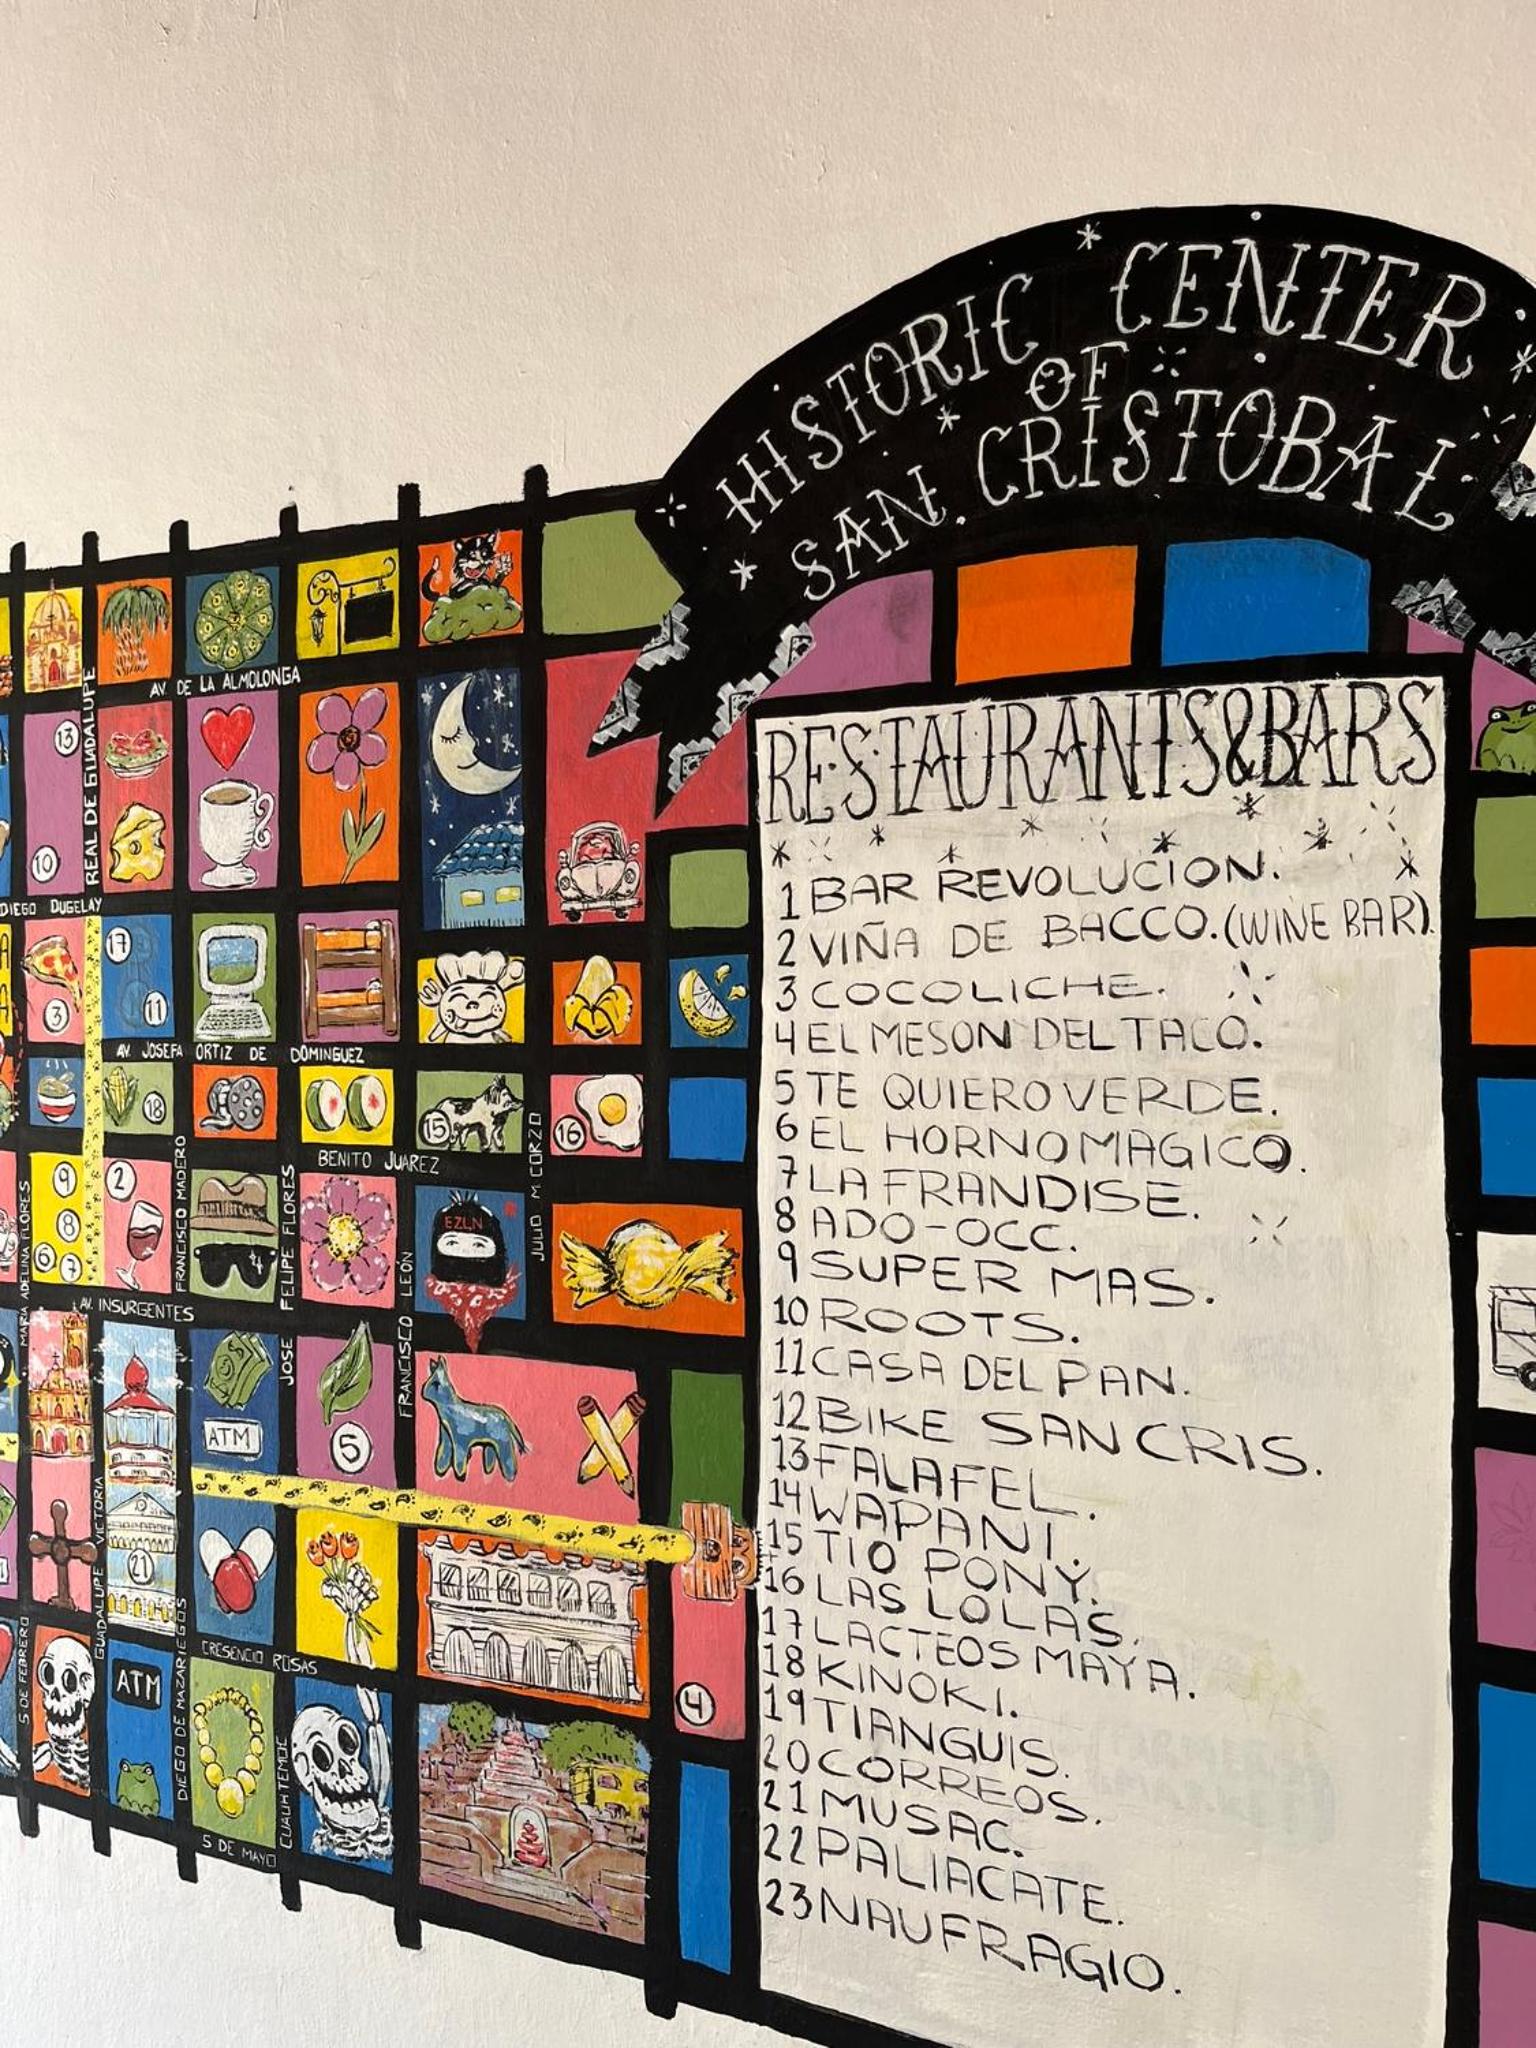 HISTORIC CENTER
OF
SAN CRISTOBAL
RESTAURANTS&BARS
1 BAR REVOLUCION.
2 VIÑA DE BACCO.(WINE BAR).
3 COCOLICHE.
4 EL MESON DEL TACO.
5 TE QUIERO VERDE.
6 EL HORNO MAGICO.
7 LA FRANDISE.
8 ADO-OCC.
9 SUPER MAS.
10 ROOTS.
11 CASA DEL PAN.
12 BIKE SAN CRIS.
13 FALAFEL.
14 WAPANI.
15 TIO PONY.
16 LAS LOLAS.
17 LACTEOS MAYA.
18 KINOKI.
19 TIANGUIS.
20 CORREOS.
21 MUSAC.
22 PALIACATE.
23 NAUFRAGIO.
AV. DE LA ALMOLONGA
REAL DE GUADALUPE
13
10
DIEGO DUGELAY
17
3
11
AV. JOSEFA ORTIZ DE DOMINGUEZ
18
15
16
BENITO JUAREZ
JULIO M. CORZO
FRANCISCO MADERO
MARIA ADELINA FLORES
9
8
6
7
2
JOSE FELIPE FLORES
EZLN
FRANCISCO LEÓN
AV. INSURGENTES
ATM
5
GUADALUPE VICTORIA
21
CRESENCIO ROSAS
5 DE FEBRERO
DIEGO DE MAZARIEGOS
ATM
CUAUHTEMOC
5 DE MAYO
4